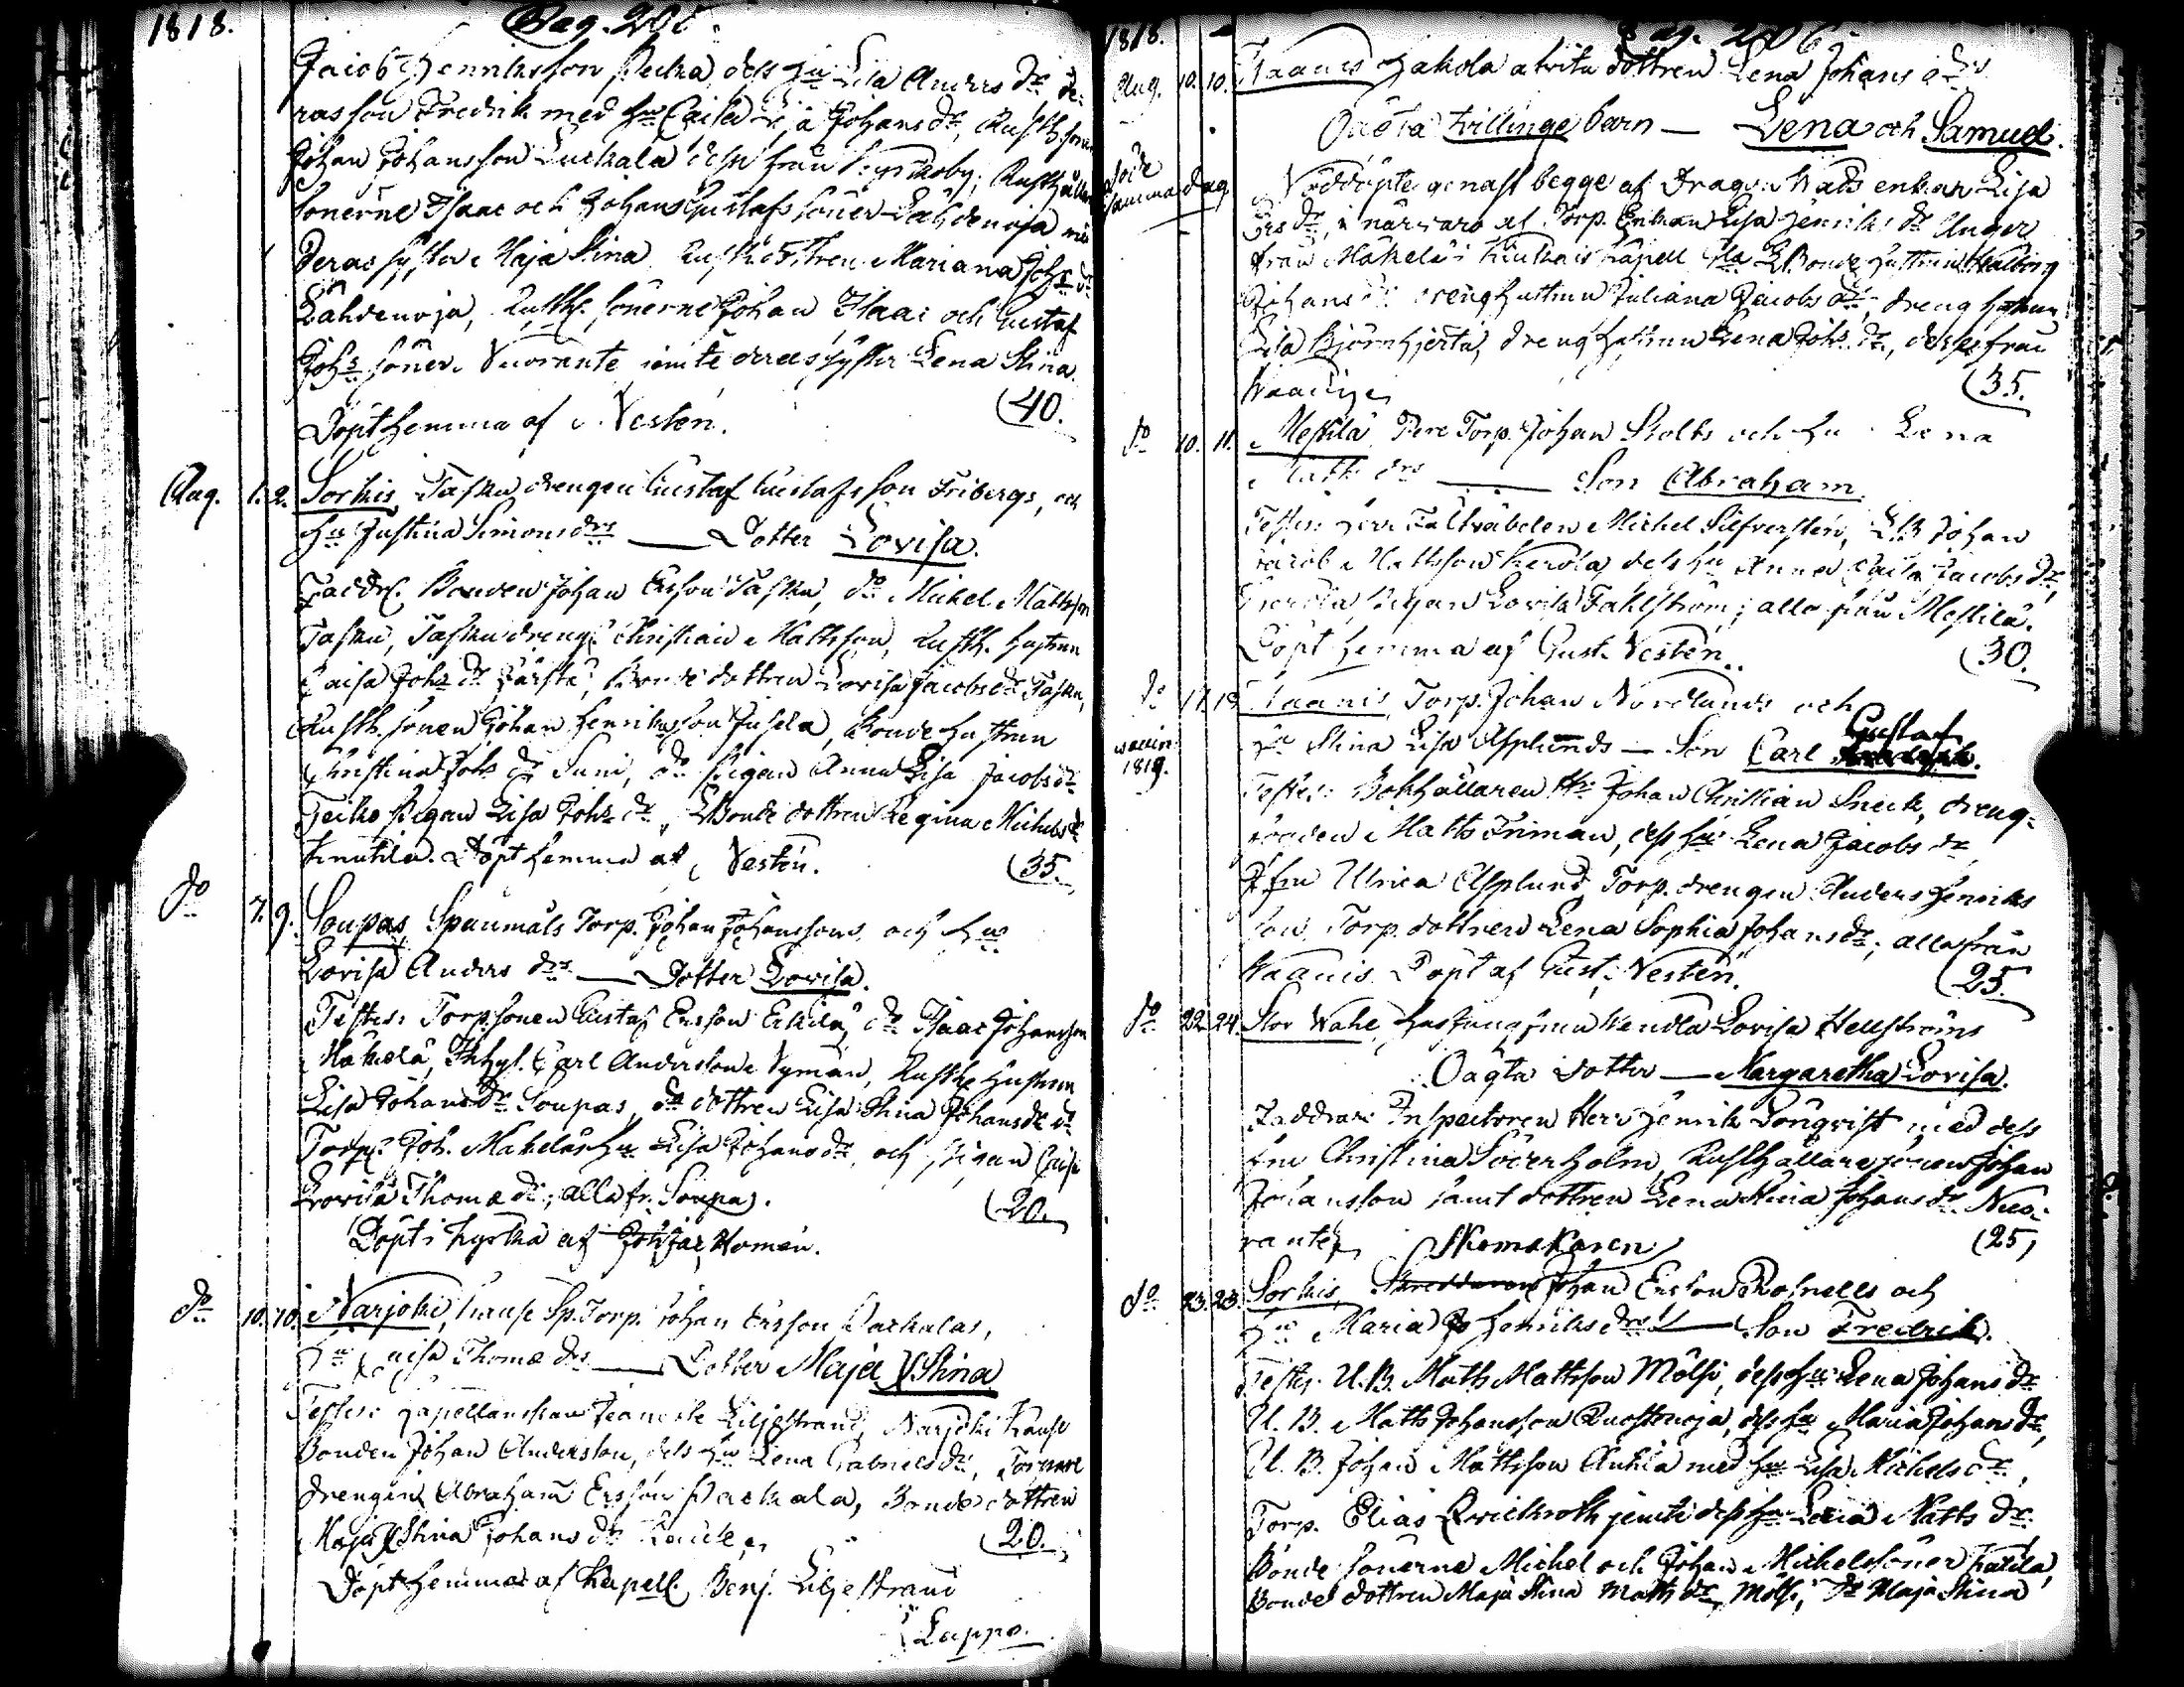 1818. Pag. 205.
Jacob Henriksson Pecka, dess hu Lisa Anders dr de-
ras son Fredrik med hu Caisa Johans dr, Rusth. sonen
Johan Johansson dess från Kyrkoby; Rusthållare
sönerne Isaac och Johan Gustafs söner Lähdenoja med
deras syster Maja Stina Rusth. dottren Mariana Johs dr
Lähdenoja, Rusth. sönerne Johan Isaac och Gustaf
Johs söner Nuorante jemte deras syster Lena Stina.
Döpt hemma af Vestén. (40.
Aug. 1. 2. Sorkis, Tasku drengen Gustaf Gustafsson Fribergs, och
hu Justina Simons drs — Dotter Lovisa.
Faddr. Bonden Johan Ersson Tasku, do Michel Mattsson
Tasku, Tasku dreng Christian Mattsson, Rusth. hustrun
Caisa Johs dr Bonde dottren Lovisa Jacobs dr Tasku,
Rusth. sonen Johan Henriksson Jusela, Bonde hustrun
Christina Johs dr Suni, do Pigan Anna Lisa Jacobs dr
Teiko Pigan Lisa Johs dr, Bonde dottren Regina Michels dr
Knutila. Döpt hemma af Vestén. (35.
do 7. 9. Soupas, Spanmåls Torp. Johan Johanssons och hus
Lovisa Anders drs — Dotter Lovisa.
Testes: Torp. sonen Gustaf Ersson Erkilä, do Isaac Johansson
Mäkelä, Inhys. Carl Andersson Nyman, Rusth. hustrun
Lisa Johans dr Soupas, do dottren Lisa Stina Johans dr do
Torp. Joh. Mäkeläs hu Lisa Johans dr, och Pigan Caisa
Lovisa Thomæ dr; alla fr. Soupas. (20.
Döpt i Kyrka af Joh. Jac. Homén.
do 10. 10. Narjoki, Sp. Torp. Johan Ersson Packalas,
hu Caisa Thomæ drs — Dotter Maja Stina
Testes: Capellanskan Jeanette Liljestrand, Narjoki
Bonden Johan Andersson, dess hu Lena Gabriels dr, Torpare
drengen Abraham Ersson Packala, Bonde dottren
Maja Stina Johans dr (20.
Döpt hemma af Kapell. Benj. Liljestrand
Lappo.
1818. Pag. 206.
Aug. 10. 10. Waanis Jakola afvita dottren Lena Johans drs
Oägta tvillinge barn — Lena och Samuel.
Döde samma dag
Nöddöpte genast begge af Drag. Wads enkan Lisa
Ers dr, i närvaro af Torp. Enkan Lisa Henriks dr Unger
från Mäkelä i Kiukais Kapell Bonde hustrun Walborg
Johans dr dreng hustrun Juliana Jacobs dr, dreng hustrun
Lisa Björnhjerta, dreng hustrun Lena Johs dr, desse från
Waanis (35.
do 10. 11. Meskila Torp. Johan Stolts och hu Lena
Matts drs — Son Abraham
Testes: Herr Fältväbelen Michel Silfversten, Johan
Jacob Mattsson Kerola, dess hu Anna Caisa Jacobs dr,
Pigan Lovisa Fahlström; alla från Meskila.
Döpt hemma af Gust. Vestén. (30.
do 17. 18. Waanis, Torp. Johan Nordlunds och
vaccin. 1819. hu Stina Lisa Asplunds — Son Carl Gustaf.
Testes: Bokhållaren Hr Johan Christian Sneck, dreng-
Matts Friman, dess hu Lena Jacobs dr
Jfru Ulrica Asplund, Torp. drengen Anders Henriks
son Torp. dottren Lena Sophia Johans dr; alla från
Waanis. Döpt af Gust. Vestén. (25.
do 22. 24. Stor Wahe, Jungfrun Wendla Lovisa Hellströms
Oägta Dotter — Margaretha Lovisa.
Faddrar Inspectoren Herr Henrik Lönqvist med dess
fru Christina Söderholm, Rusthållare sonen Johan
Johansson samt dottren Lena Stina Johans dr Nuo-
rante. (25,
Skomakaren
do 23. 23. Sorkis, Skreddaren Johan Ersson Rosnells och
hu Maria Henriks drs — Son Fredrik.
Testes. U. B. Matts Mattsson Mölsi, dess hu Lena Johans dr
U. B. Matts Johansson Ruostenoja, dess hu Maria Johans dr,
U. B. Johan Mattsson Anttila med hu Lisa Michels dr,
Torp. Elias Qwickroth jemte dess hu Lena Matts dr
Bonde sönerne Michel och Johan Michels söner Kattila,
Bonde dottren Maja Stina Matts dr Mölsi, do Maja Stina